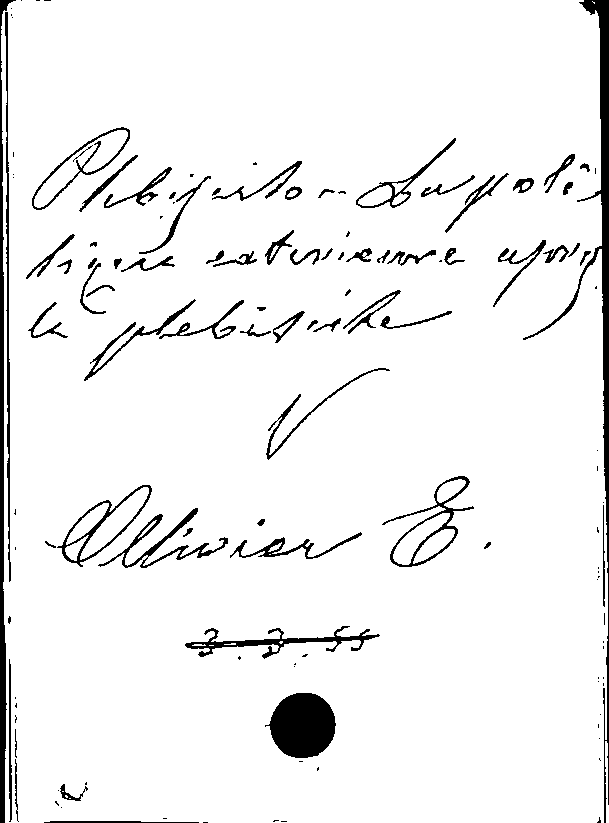 Plebiscito - La poli
tique exterieure apres
le plebiscite
V
Ollivier E.
3.3.55